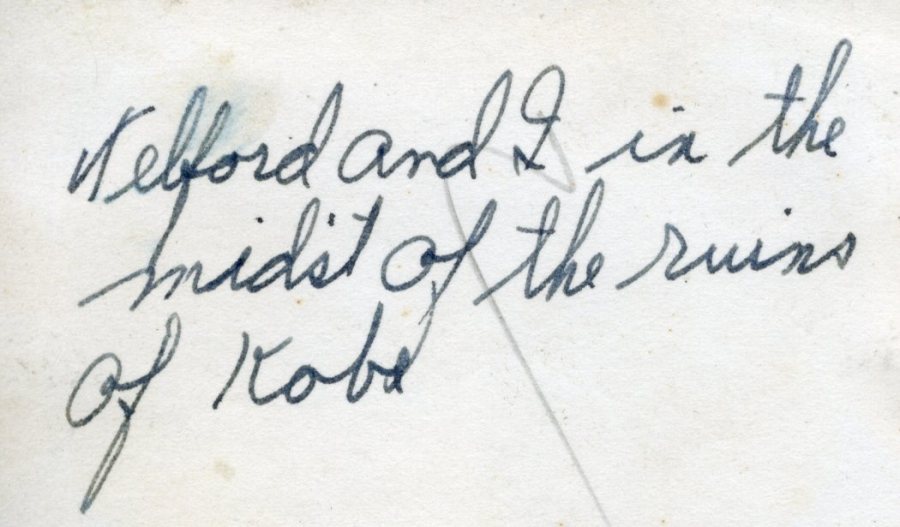 Welford and I in the
midst of the ruins
of Kobe